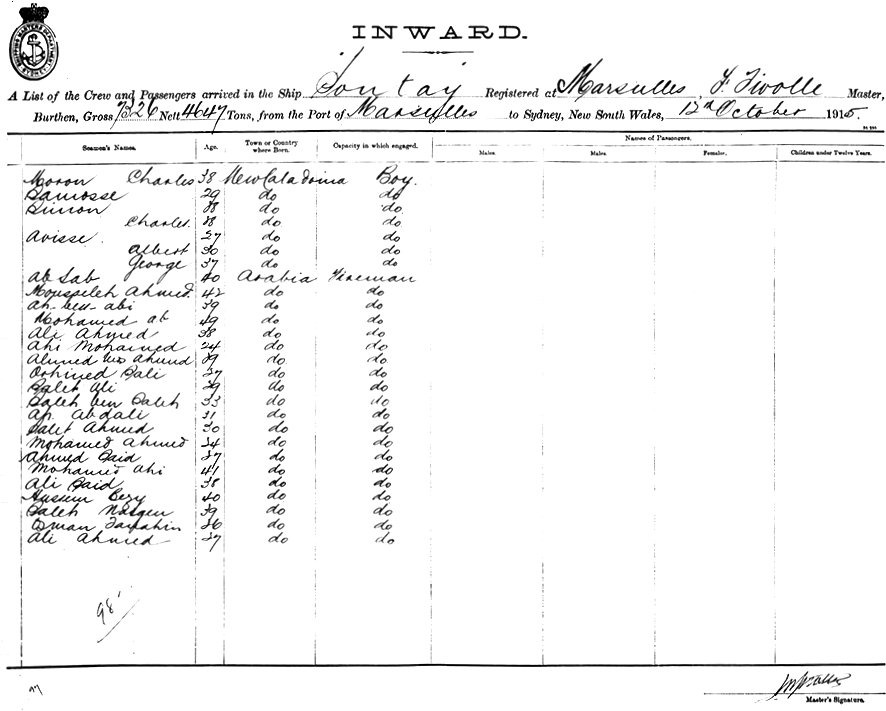 INWARD.
A List of the Crew and Passengers arrived in the Ship Sontay Registered at Marseilles, F. Master,
Burthen, Gross 7326 Nett 4647 Tons, from the Port of Marseilles to Sydney, New South Wales, 12th October 1915.
Names of Passengers.
Seamen's Names. Age. Town or Country where Born. Capacity in which engaged. Males. Males. Females. Children under Twelve Years.
Moron Charles 38 New Caladonia Boy.
29 do do
Simon do do
Charles. do do
Avisse. 27 do do
Albert 30 do do
George 37 do do
Ali Sab 40 Arabia Fireman
Ahmed. 42 do do
39 do do
Mohamed 49 do do
Ali Ahmed 38 do do
Ahi Mohamed 24 do do
Ahmed Ahmed 39 do do
Sali 37 do do
Salet Ali 29 do do
Saleh ben Saleh 33 do do
Abdali 31 do do
Salet Ahmed 30 do do
Mohamed Ahmed 34 do do
Ahmed Said 37 do do
Mohamed Ahi 41 do do
Ali Said 38 do do
40 do do
Saleh 39 do do
Osman 36 do do
Ali Ahmed 37 do do
98
Master's Signature.